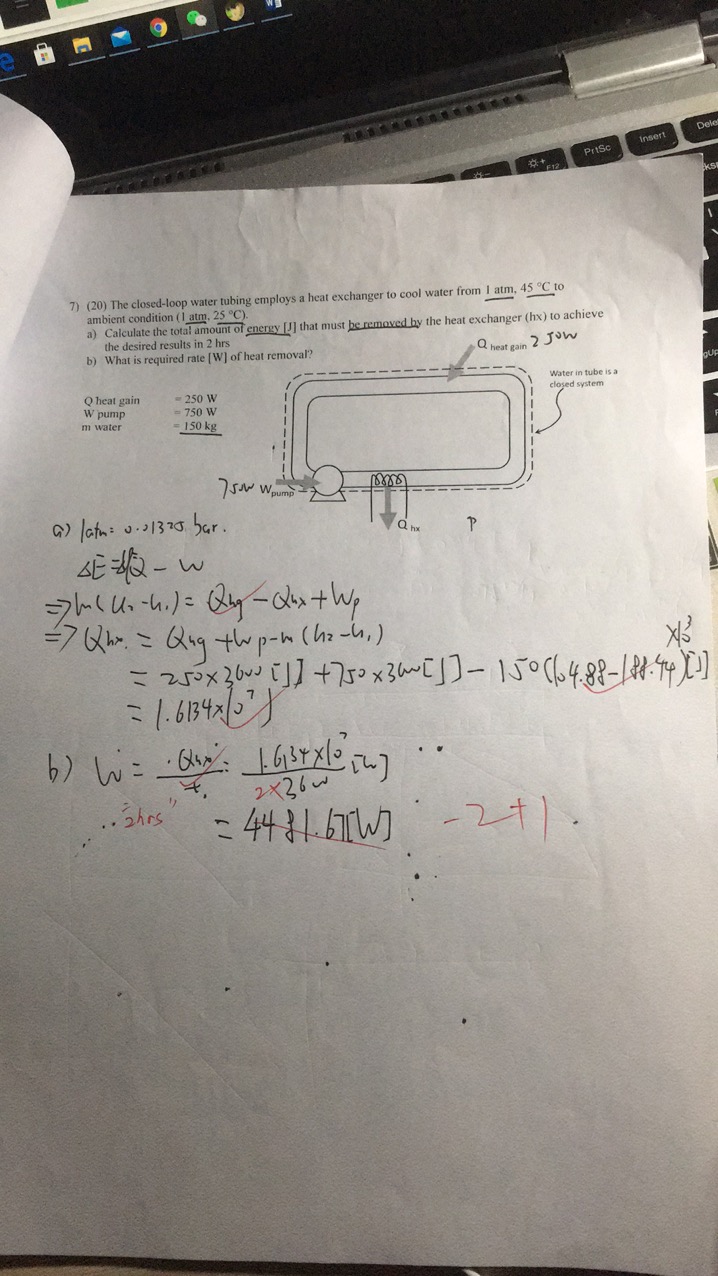 PrtSc
Insert
F12
7) (20) The closed-loop water tubing employs a heat exchanger to cool water from 1 atm, 45 °C to
ambient condition (1 atm, 25 °C).
a) Calculate the total amount of energy [J] that must be removed by the heat exchanger (hx) to achieve
the desired results in 2 hrs
b) What is required rate [W] of heat removal?
Q heat gain 250W
Water in tube is a
closed system
Q heat gain = 250 W
W pump = 750 W
m water = 150 kg
750W W pump
Q hx
P
a) 1atm = 0.01325 bar.
ΔE = Q - W
=> m(u₂-u₁) = Qhg - Qhx + Wp
=> Qhx = Qhg + Wp - m(h₂-h₁)
= 250×3600 [J] + 750×3600[J] - 150(104.88-188.44)×10³[J]
= 1.6134×10⁷ J
b) Ẇ = Qhx/t = 1.6134×10⁷/2×3600 [W]
"2hrs"
= 4481.67[W]
-2+1